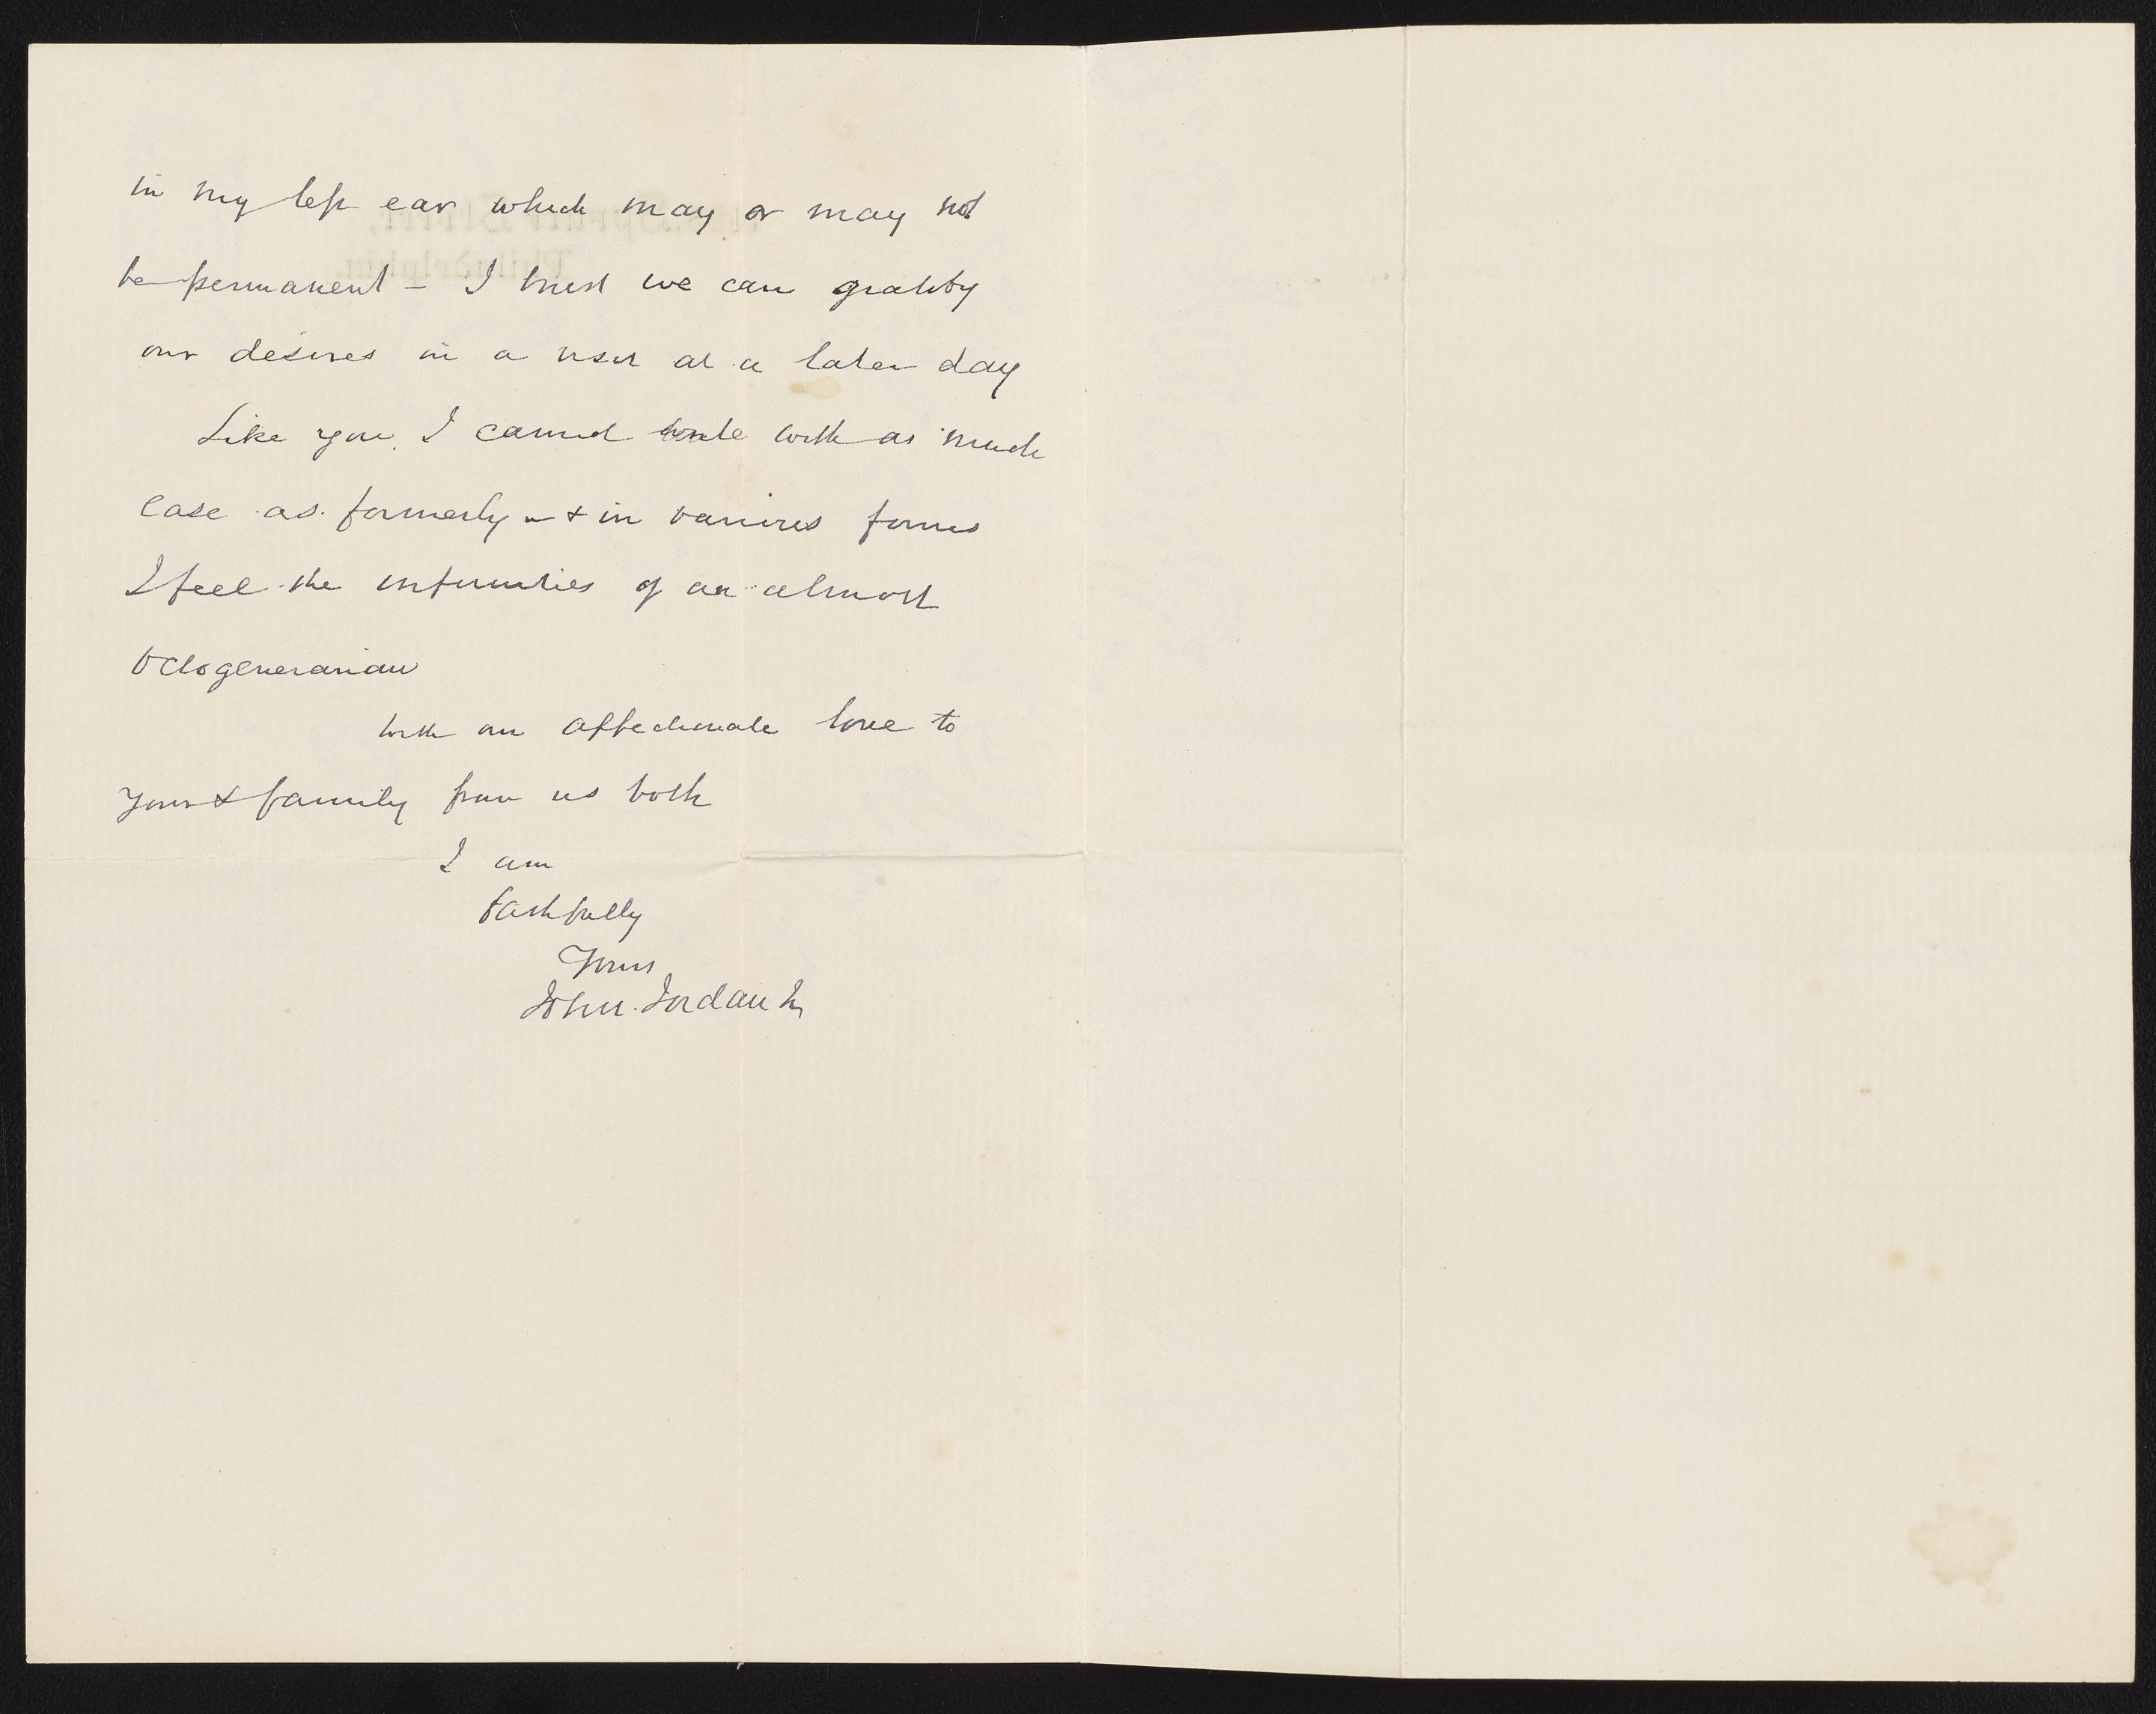 in my left ear which may or may not
be permanent – I trust we can gratify
our desires in a visit at a later day
Like you, I cannot write with as much
ease as formerly – & in various forms
I feel the infirmities of an almost
Octogenerarian
with our affectionate love to
your & family from us both
I am
faithfully
Yours
John Jordan Jr
Philadelphia.